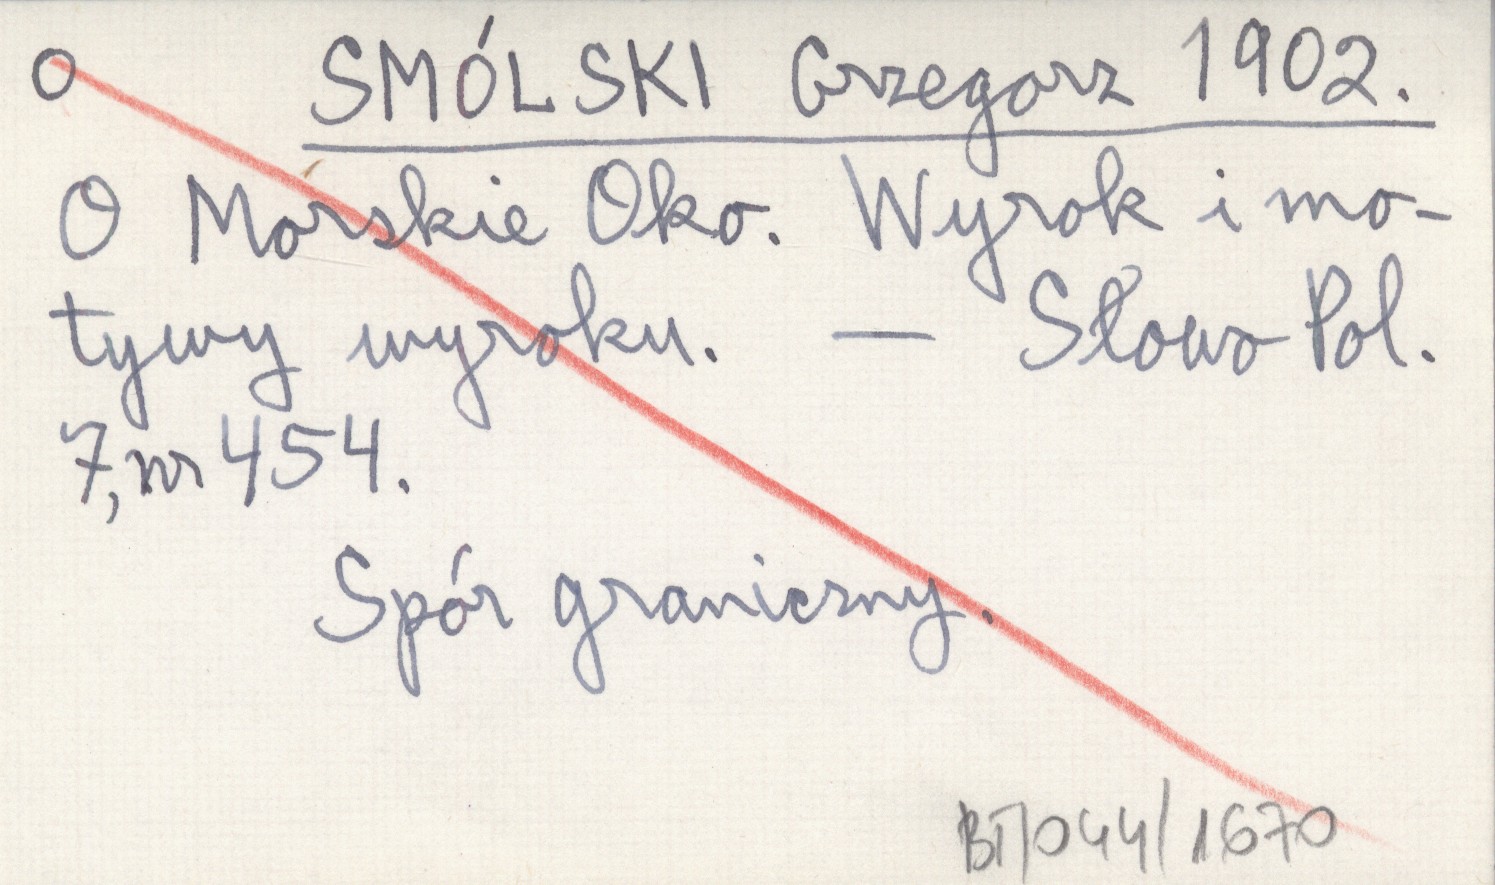 O SMÓLSKI Grzegorz 1902.
O Morskie Oko. Wyrok i mo-
tywy wyroku. — Słowo Pol.
7, nr 454.
Spór graniczny.
BT/044/1670